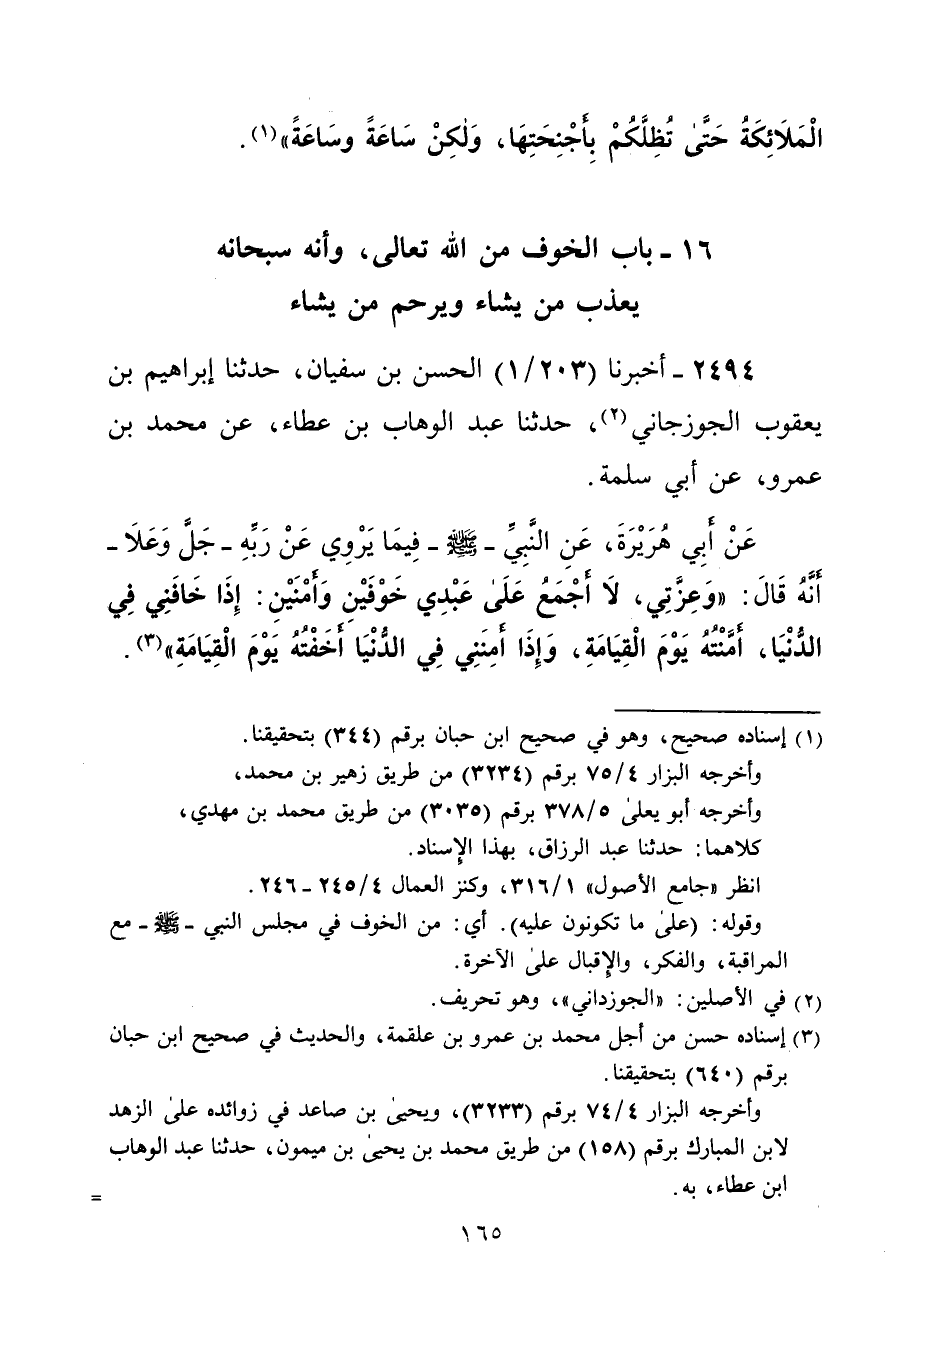 الْمَلَائِكَةُ حَتَّىٰ تُظِلَّكُمْ بِأَجْنِحَتِهَا، وَلٰكِنْ سَاعَةً وسَاعَةً»(١).
١٦ ـ باب الخوف من الله تعالى، وأنه سبحانه
يعذب من يشاء ويرحم من يشاء
٢٤٩٤ ـ أخبرنا (١/٢٠٣) الحسن بن سفيان، حدثنا إبراهيم بن
يعقوب الجوزجاني(٢)، حدثنا عبد الوهاب بن عطاء، عن محمد بن
عمرو، عن أبي سلمة.
عَنْ أَبِي هُرَيْرَةَ، عَنِ النَّبِيِّ ـ ﷺ ـ فِيمَا يَرْوِي عَنْ رَبِّهِ ـ جَلَّ وَعَلَا ـ
أَنَّهُ قَالَ: «وَعِزَّتِي، لَا أَجْمَعُ عَلَىٰ عَبْدِي خَوْفَيْنِ وَأَمْنَيْنِ: إِذَا خَافَنِي فِي
الدُّنْيَا، أَمَّنْتُهُ يَوْمَ الْقِيَامَةِ، وَإِذَا أَمِنَنِي فِي الدُّنْيَا أَخَفْتُهُ يَوْمَ الْقِيَامَةِ»(٣).
(١) إسناده صحيح، وهو في صحيح ابن حبان برقم (٣٤٤) بتحقيقنا.
وأخرجه البزار ٧٥/٤ برقم (٣٢٣٤) من طريق زهير بن محمد،
وأخرجه أبو يعلىٰ ٣٧٨/٥ برقم (٣٠٣٥) من طريق محمد بن مهدي،
كلاهما: حدثنا عبد الرزاق، بهذا الإسناد.
انظر «جامع الأصول» ٣١٦/١، وكنز العمال ٢٤٥/٤ ـ ٢٤٦.
وقوله: (علىٰ ما تكونون عليه). أي: من الخوف في مجلس النبي ـ ﷺ ـ مع
المراقبة، والفكر، والإقبال علىٰ الآخرة.
(٢) في الأصلين: «الجوزداني»، وهو تحريف.
(٣) إسناده حسن من أجل محمد بن عمرو بن علقمة، والحديث في صحيح ابن حبان
برقم (٦٤٠) بتحقيقنا.
وأخرجه البزار ٧٤/٤ برقم (٣٢٣٣)، ويحيىٰ بن صاعد في زوائده علىٰ الزهد
لابن المبارك برقم (١٥٨) من طريق محمد بن يحيىٰ بن ميمون، حدثنا عبد الوهاب
ابن عطاء، به.
=
١٦٥